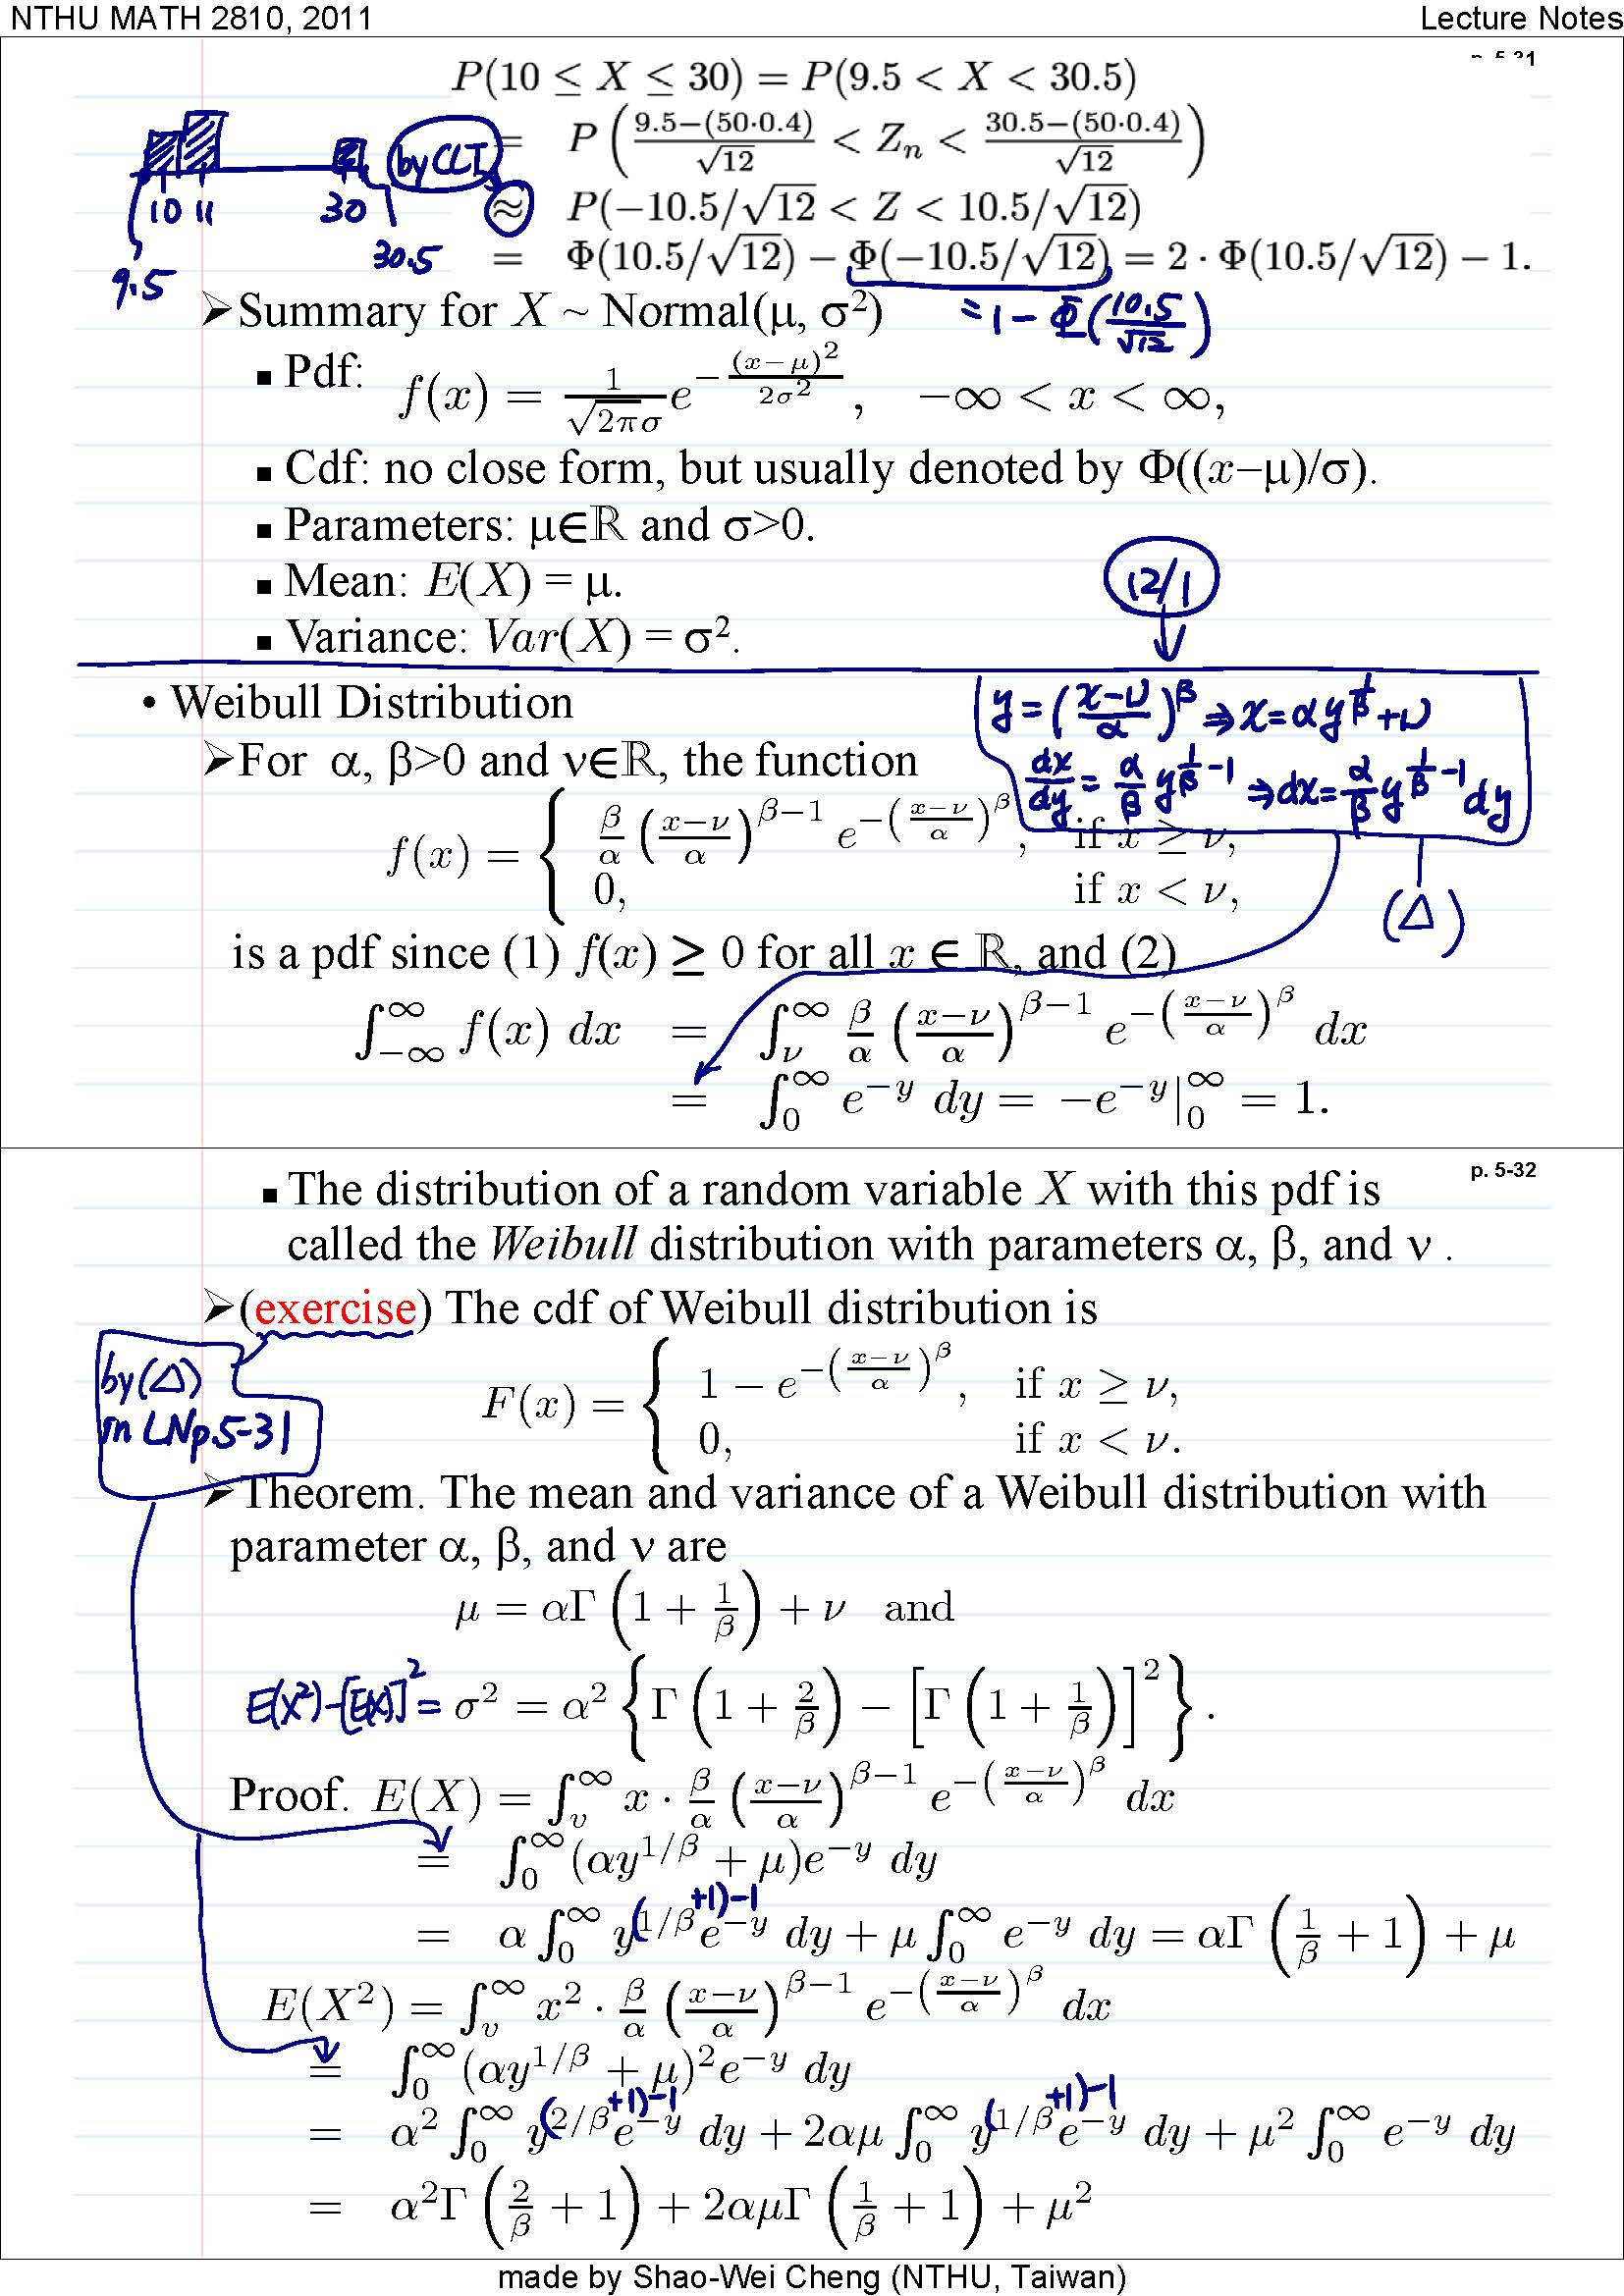 NTHU MATH 2810, 2011 Lecture Notes
P(10 ≤ X ≤ 30) = P(9.5 < X < 30.5)
= P((9.5−(50·0.4))/√12 < Zₙ < (30.5−(50·0.4))/√12)
by CLT
≈ P(−10.5/√12 < Z < 10.5/√12)
10 11 30
= Φ(10.5/√12) − Φ(−10.5/√12) = 2 · Φ(10.5/√12) − 1.
9.5 30.5
= 1 − Φ(10.5/√12)
➢Summary for X ~ Normal(μ, σ²)
▪ Pdf: f(x) = 1/(√2π σ) e^{−(x−μ)²/(2σ²)}, −∞ < x < ∞,
▪ Cdf: no close form, but usually denoted by Φ((x−μ)/σ).
▪ Parameters: μ∈ℝ and σ>0.
▪ Mean: E(X) = μ.
▪ Variance: Var(X) = σ².
12/1
• Weibull Distribution
y = ((x−ν)/α)^β ⇒ x = αy^{1/β} + ν
dx/dy = (α/β) y^{1/β −1} ⇒ dx = (α/β) y^{1/β −1} dy
(△)
➢For α, β>0 and ν∈ℝ, the function
f(x) = { (β/α) ((x−ν)/α)^{β−1} e^{−((x−ν)/α)^β}, if x ≥ ν,
0, if x < ν,
is a pdf since (1) f(x) ≥ 0 for all x ∈ ℝ, and (2)
∫_{−∞}^{∞} f(x) dx = ∫_ν^∞ (β/α) ((x−ν)/α)^{β−1} e^{−((x−ν)/α)^β} dx
= ∫_0^∞ e^{−y} dy = −e^{−y}|_0^∞ = 1.
p. 5-32
▪ The distribution of a random variable X with this pdf is
called the Weibull distribution with parameters α, β, and ν .
➢(exercise) The cdf of Weibull distribution is
by (△)
in LNp.5-31
F(x) = { 1 − e^{−((x−ν)/α)^β}, if x ≥ ν,
0, if x < ν.
➢Theorem. The mean and variance of a Weibull distribution with
parameter α, β, and ν are
μ = αΓ(1 + 1/β) + ν and
E(X²)−[E(X)]² = σ² = α² {Γ(1 + 2/β) − [Γ(1 + 1/β)]²}.
Proof. E(X) = ∫_υ^∞ x · (β/α) ((x−ν)/α)^{β−1} e^{−((x−ν)/α)^β} dx
= ∫_0^∞ (αy^{1/β} + μ)e^{−y} dy
= α ∫_0^∞ y^{(1/β +1)−1} e^{−y} dy + μ ∫_0^∞ e^{−y} dy = αΓ(1/β + 1) + μ
E(X²) = ∫_υ^∞ x² · (β/α) ((x−ν)/α)^{β−1} e^{−((x−ν)/α)^β} dx
= ∫_0^∞ (αy^{1/β} + μ)² e^{−y} dy
= α² ∫_0^∞ y^{(2/β +1)−1} e^{−y} dy + 2αμ ∫_0^∞ y^{(1/β +1)−1} e^{−y} dy + μ² ∫_0^∞ e^{−y} dy
= α²Γ(2/β + 1) + 2αμΓ(1/β + 1) + μ²
made by Shao-Wei Cheng (NTHU, Taiwan)